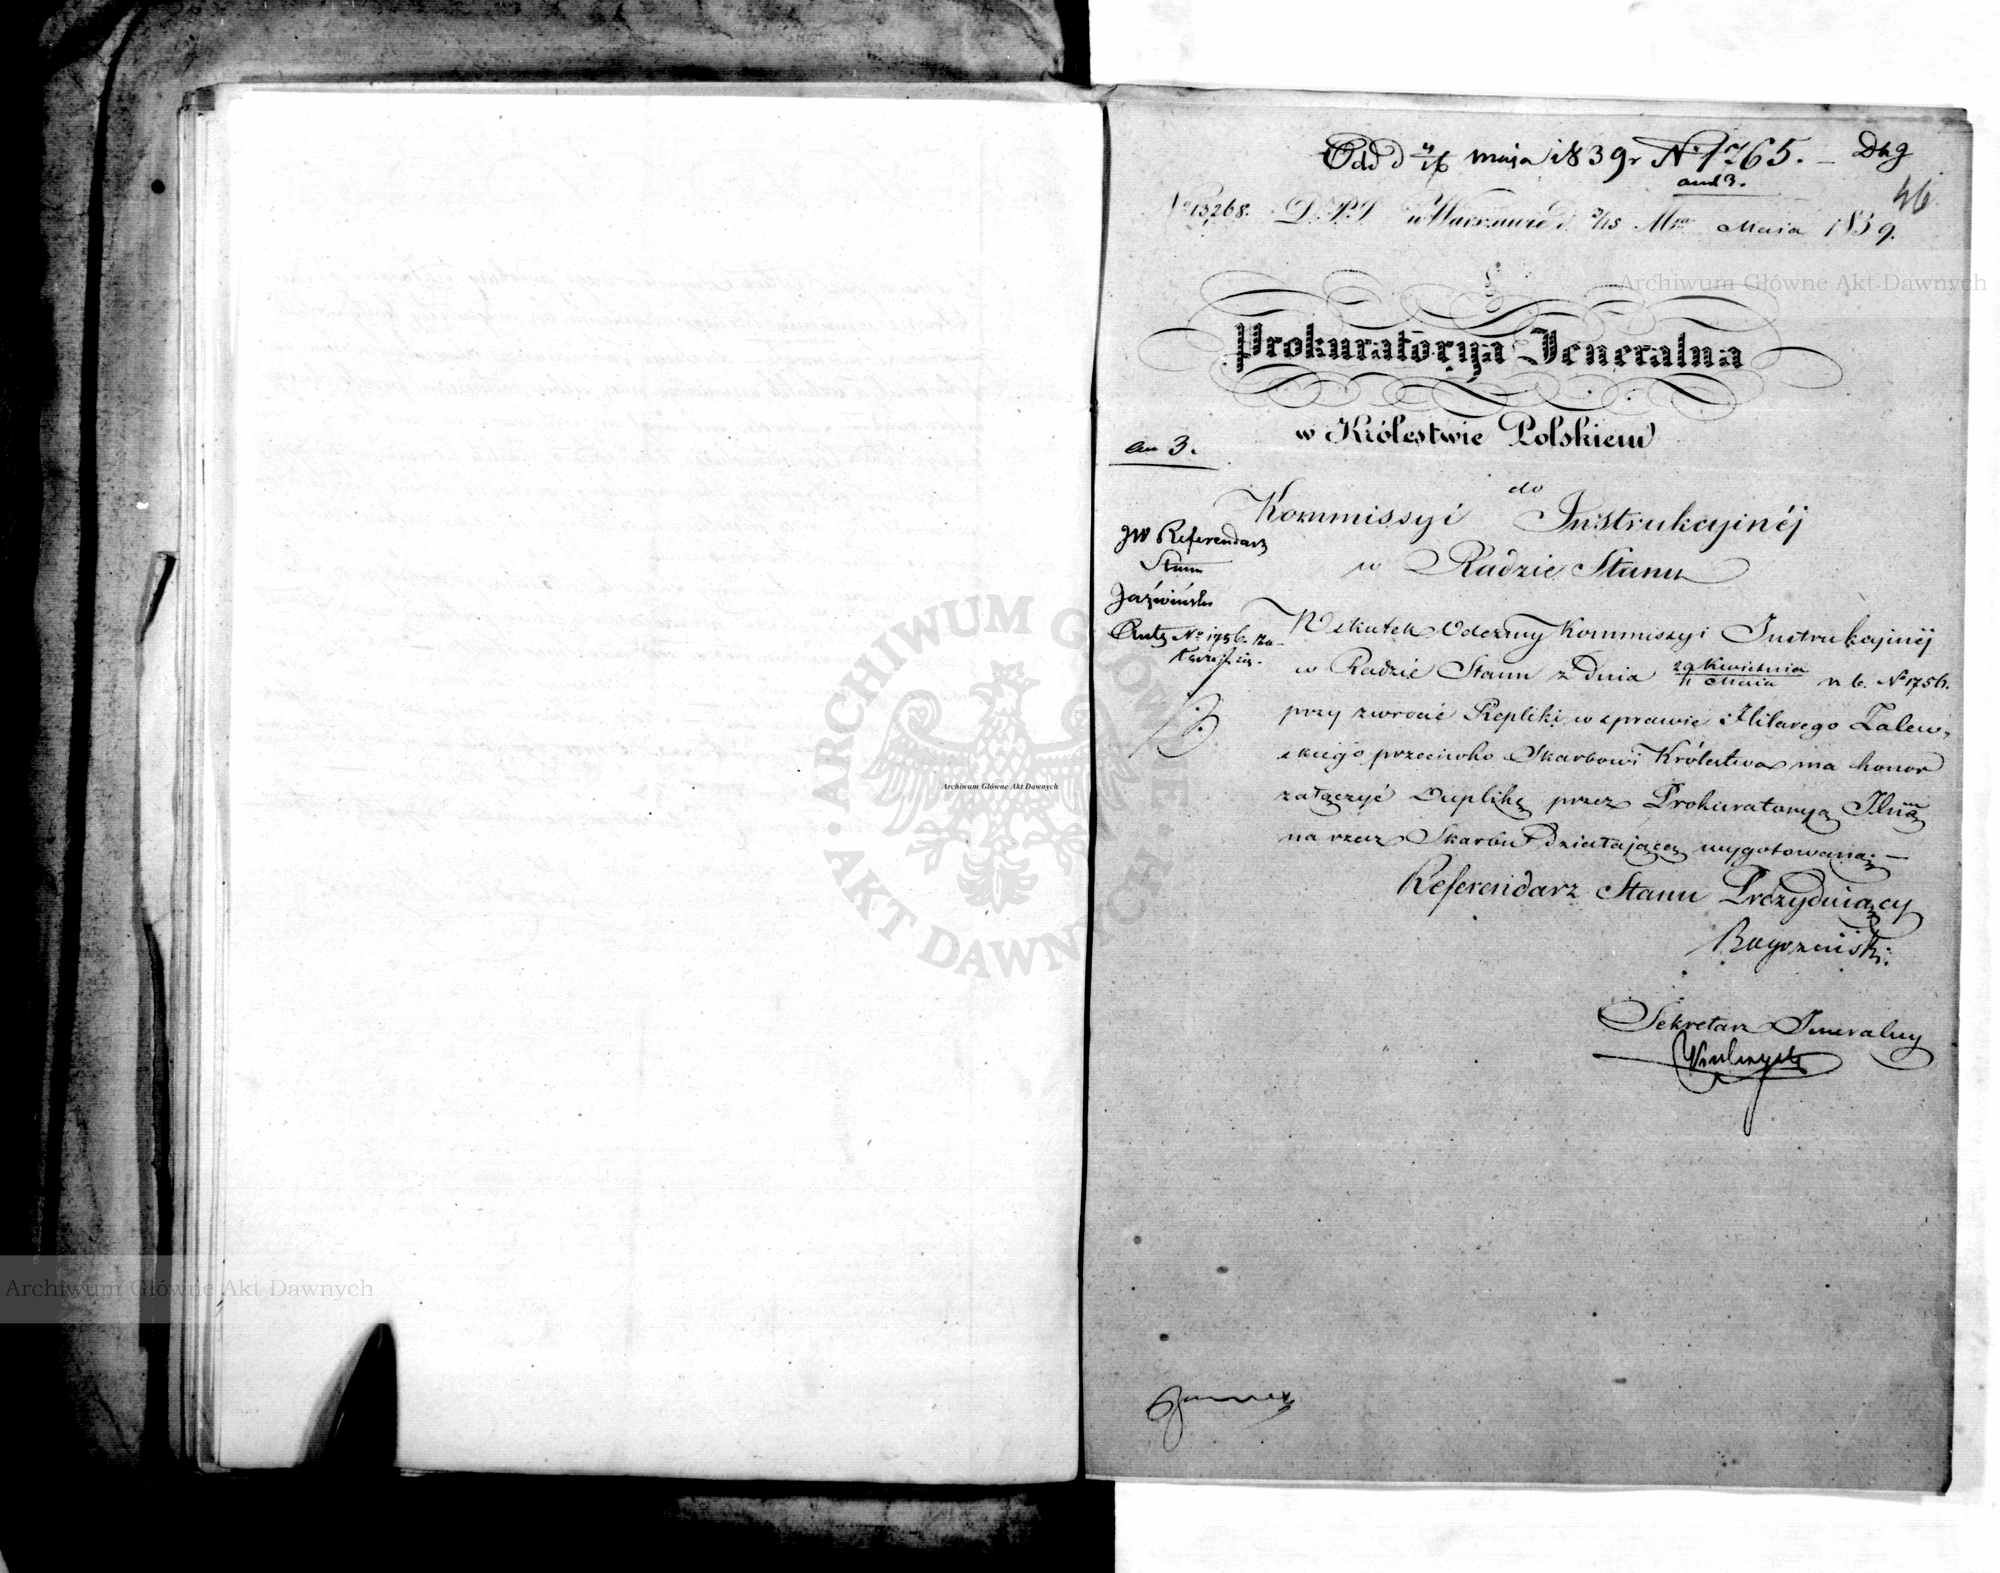 Odd d 4/16 maja 1839 r No 1765. – Dhg
and 3.
46
No 13,268. D.P.S. w Warszawie d. 3/15 Mca Maia 1839.
Prokuratorya Jeneralna
w Królestwie Polskiem
do
Kommissyi Instrukcyinéj
w Radzie Stanu
an 3.
JW Referendarz
Stanu
Jaźwiński
No 1756. za-
W skutek Odezwy Kommissyi Instrukcyinéj
w Radzie Stanu z Dnia 29 Kwietnia / 11 Maia r. b. No 1756.
przy zwrocie Repliki w sprawie Hilarego Zalew-
skiego przeciwko Skarbowi Królestwa ma honor
załączyć Duplikę przez Prokuratoryą Jlną
na rzecz Skarbu działaiącą wygotowaną. –
Referendarz Stanu Prezyduiący
Sekretarz Jeneralny
Archiwum Główne Akt Dawnych
Archiwum Główne Akt Dawnych
Archiwum Główne Akt Dawnych
ARCHIWUM GŁÓWNE · AKT DAWNYCH ·